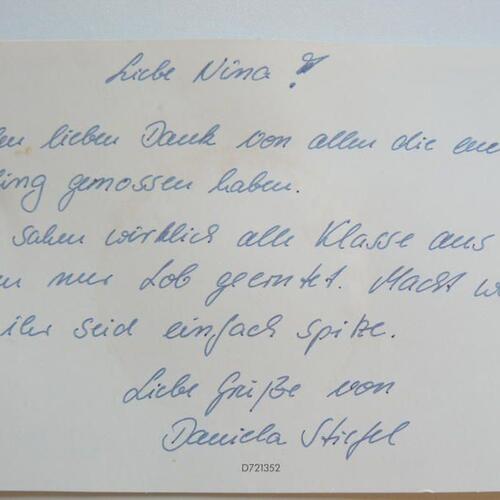 Liebe Nina!
lieben Dank von allen die
genossen haben.
sahen wirklich alle Klasse aus
nur Lob geerntet. Macht
ihr seid einfach spitze.
Liebe Grüße von
Daniela Stiefel
D721352